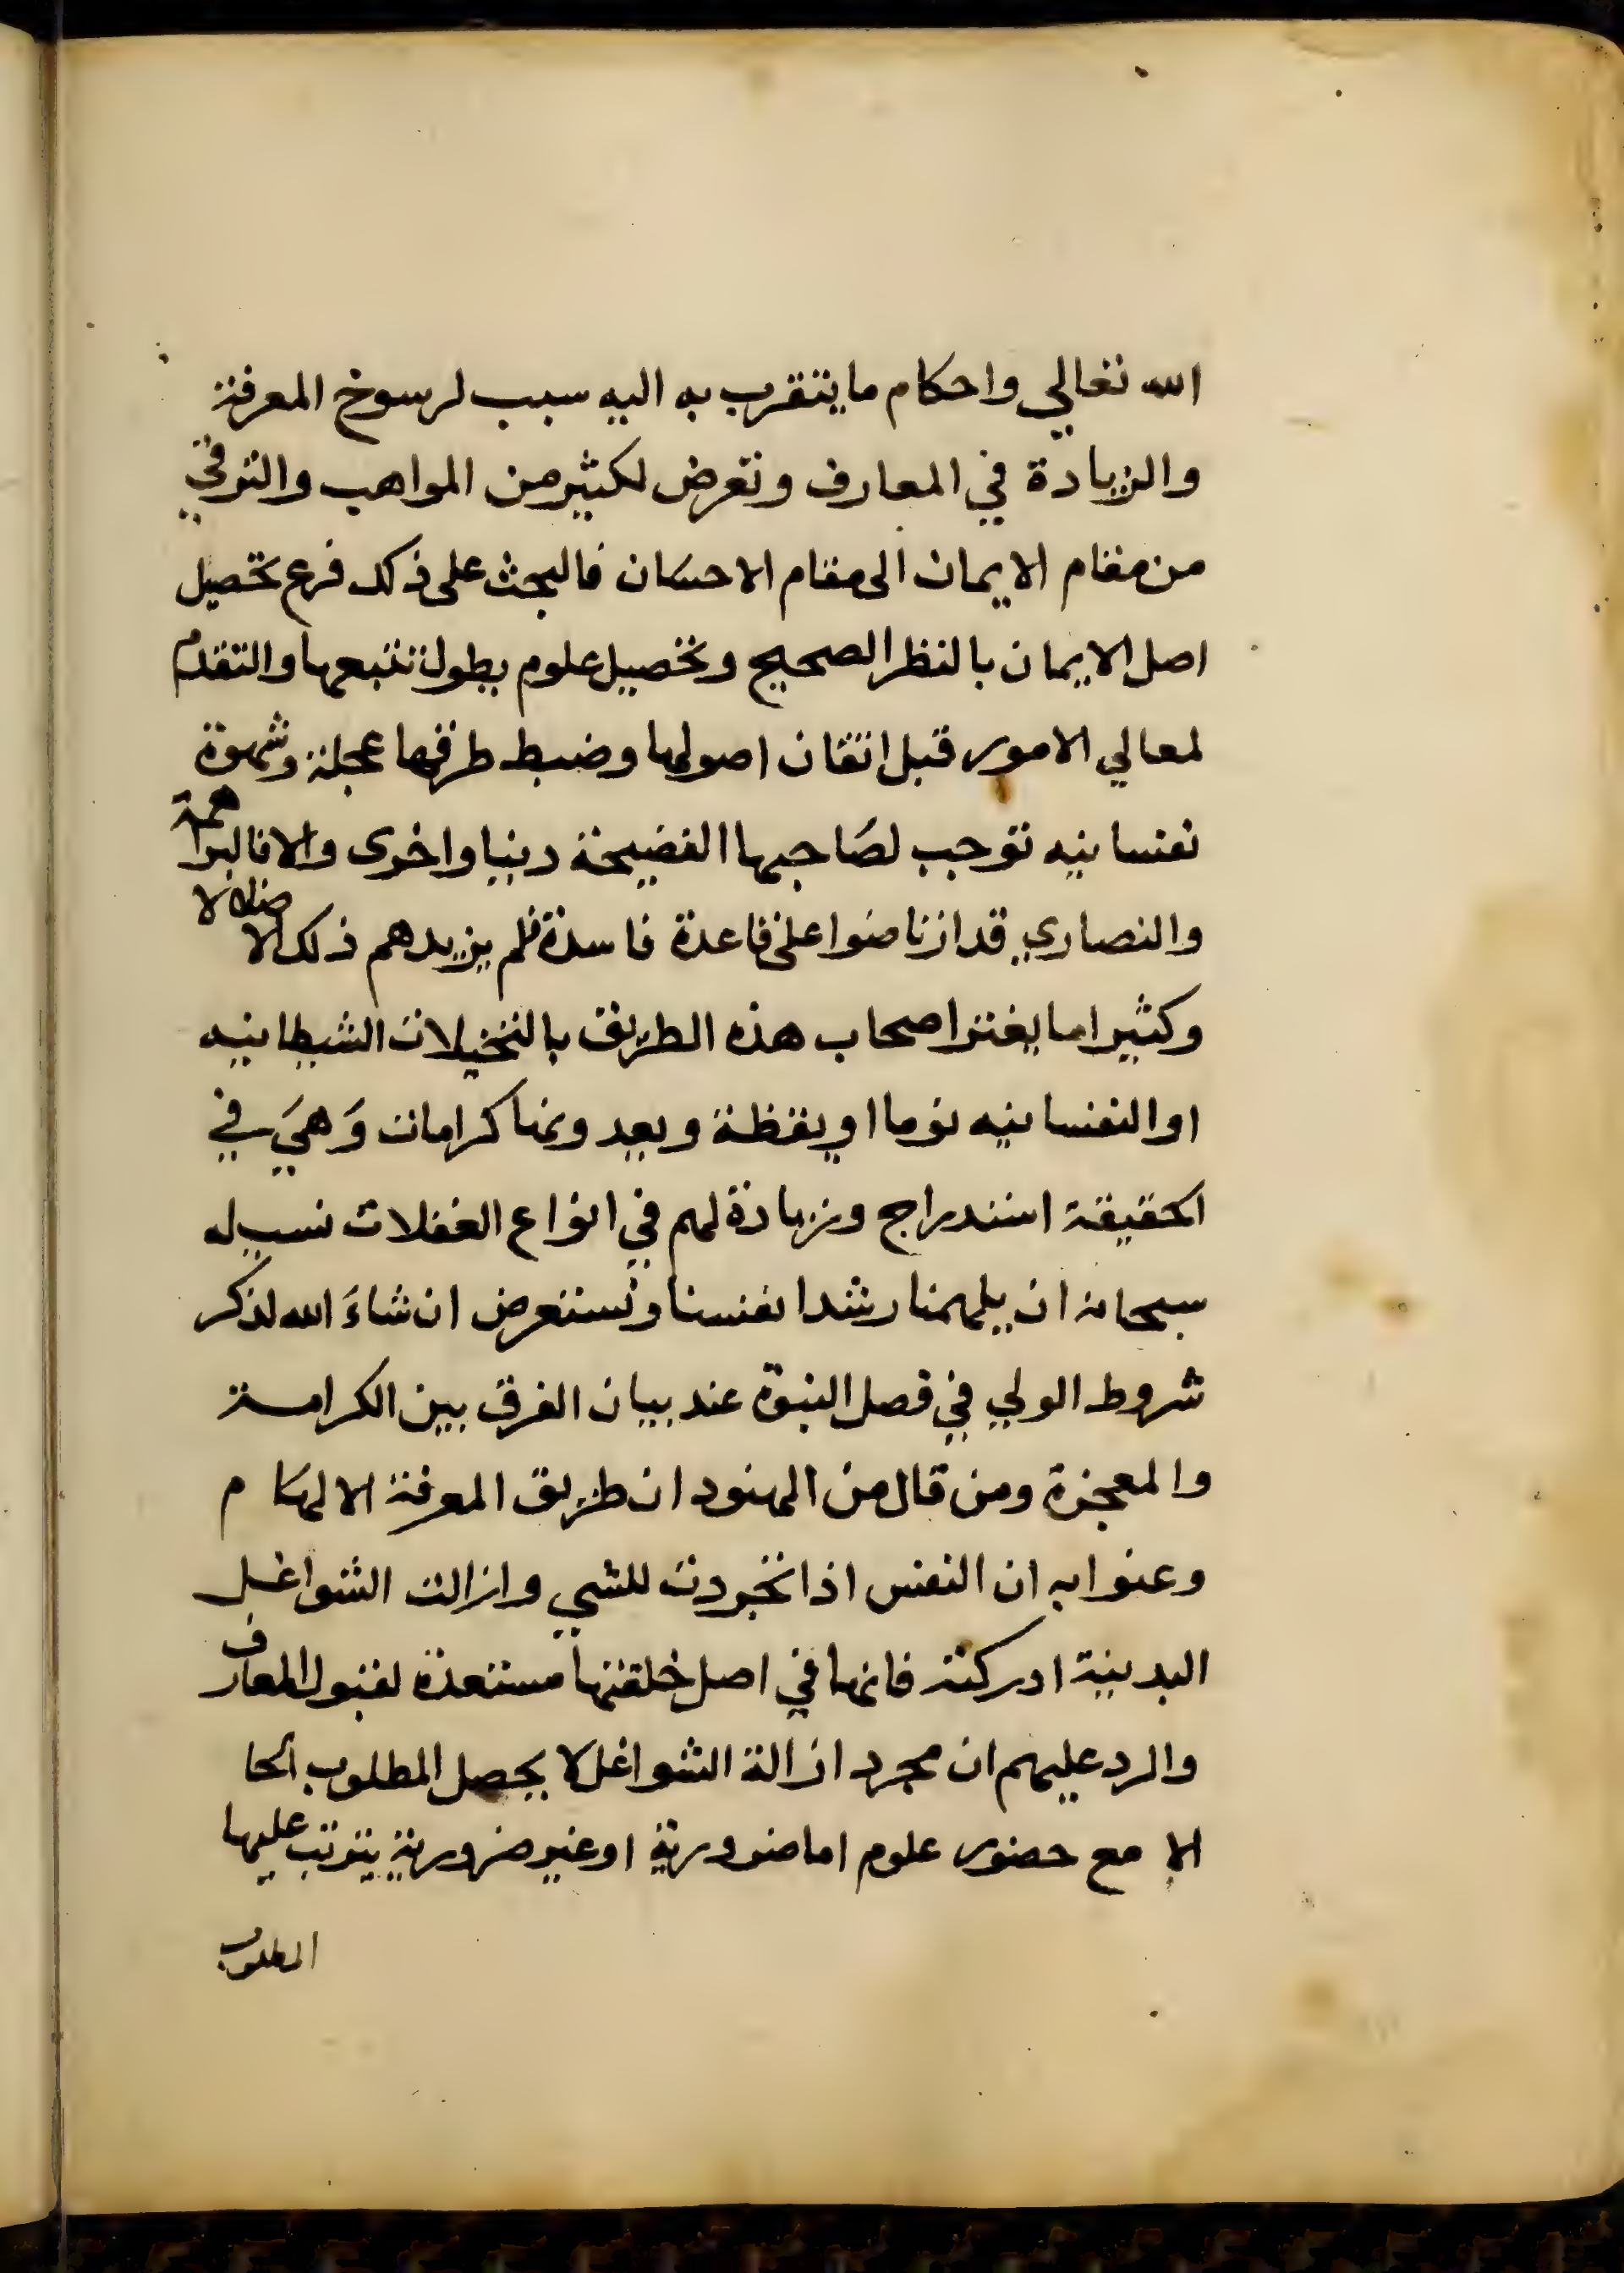 الله تعالي واحكام ما يتقرب به اليه سبب لرسوخ المعرفة
والزيادة في المعارف وتعرض لكثير من المواهب والترقي
من مقام الايمان الى مقام الاحسان فالبحث على ذلك فرع تحصيل
اصل الايمان بالنظر الصحيح وتحصيل علوم يطول تتبعها والتقدم
لمعالي الامور قبل اتقان اصولها وضبط طرقها عجلة وشهوة
نفسانيه توجب لصاحبها الفضيحة دنيا واخرى والا فالبراهمة
والنصاري قد ارتاضوا على قاعدة فاسدة فلم يزيدهم ذلك الا ضلالا
وكثيرا ما يغتر اصحاب هذه الطريق بالتخيلات الشيطانيه
او النفسانيه نوما او يقظة ويعدونها كرامات وَهيَ في
الحقيقة استدراج وزيادة لهم في انواع الغفلات نسيله
سبحانه ان يلهمنا رشد انفسنا ونستعرض ان شاءَ الله لذكر
شروط الولي في فصل النبوة عند بيان الفرق بين الكرامة
والمعجزة ومن قال من الهنود ان طريق المعرفة الالهام
وعنوا به ان النفس اذا تجردت للشي وازالت الشواغل
البدنية ادركته فانها في اصل خلقتها مستعدة لقبول المعارف
والرد عليهم ان مجرد ازالة الشواغل لا يحصل المطلوب الحا
الا مع حضور علوم اما ضرورية او غير ضرورية يترتب عليها
المطلوب